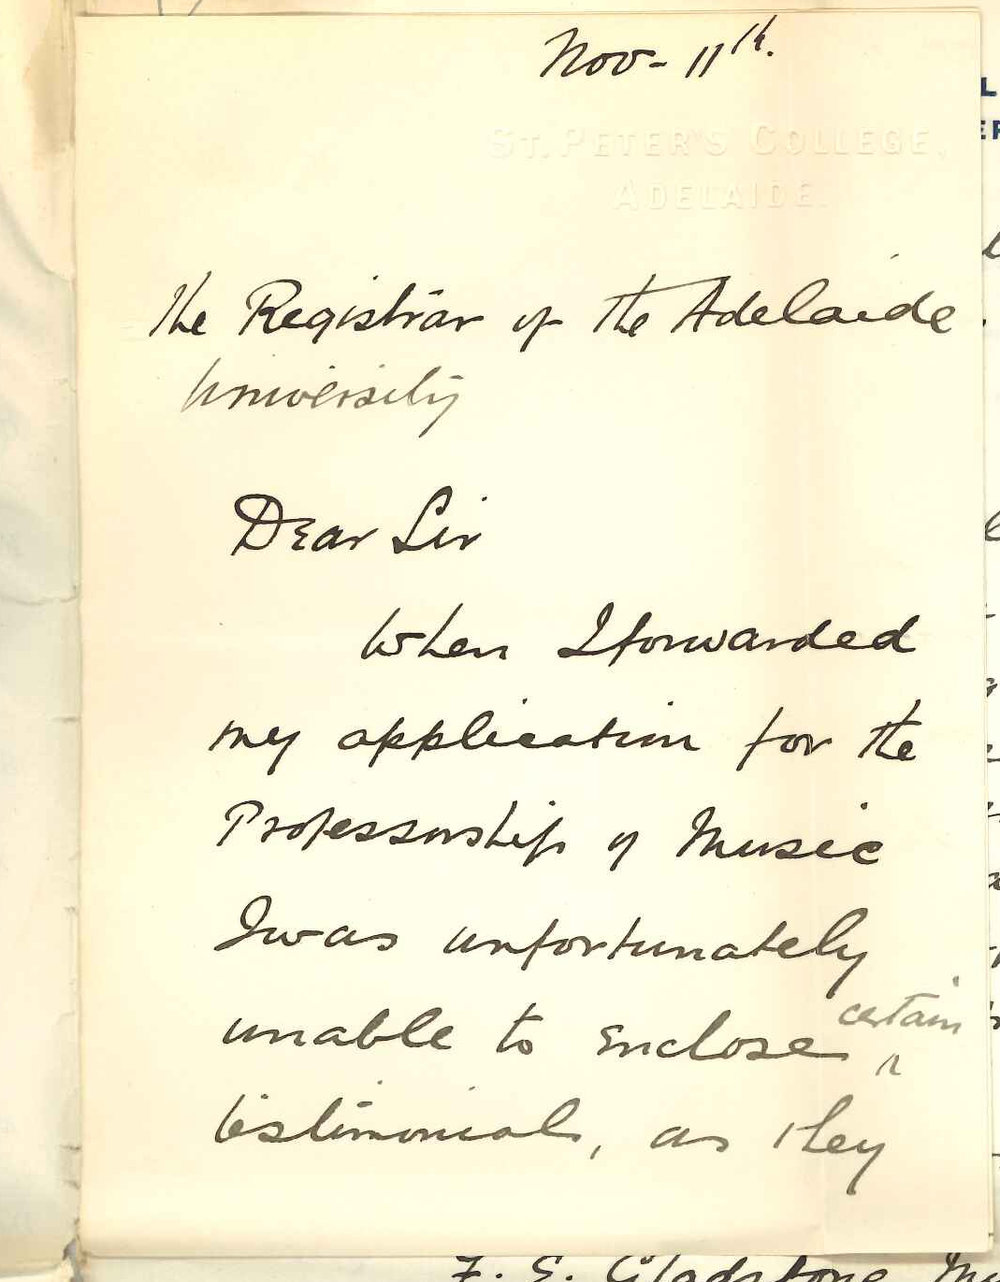 Nov- 11th.
ST. PETER'S COLLEGE,
ADELAIDE.
The Registrar of the Adelaide
University
Dear Sir
When I forwarded
my application for the
Professorship of Music
I was unfortunately
unable to enclose certain
testimonials, as they
F. E. Gladstone